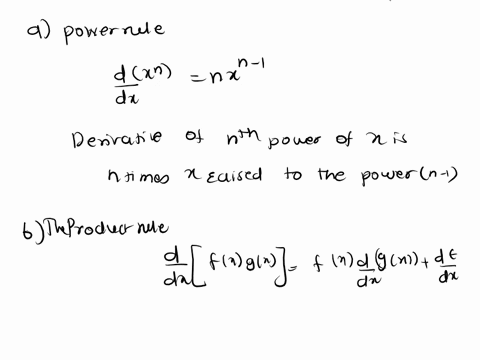 a) power rule
d(xⁿ)/dx = nxⁿ⁻¹
Derivative of nth power of x is
n times x raised to the power (n-1)
b) The Product rule
d/dx [f(x)g(x)] = f(x) d/dx (g(x)) + df/dx